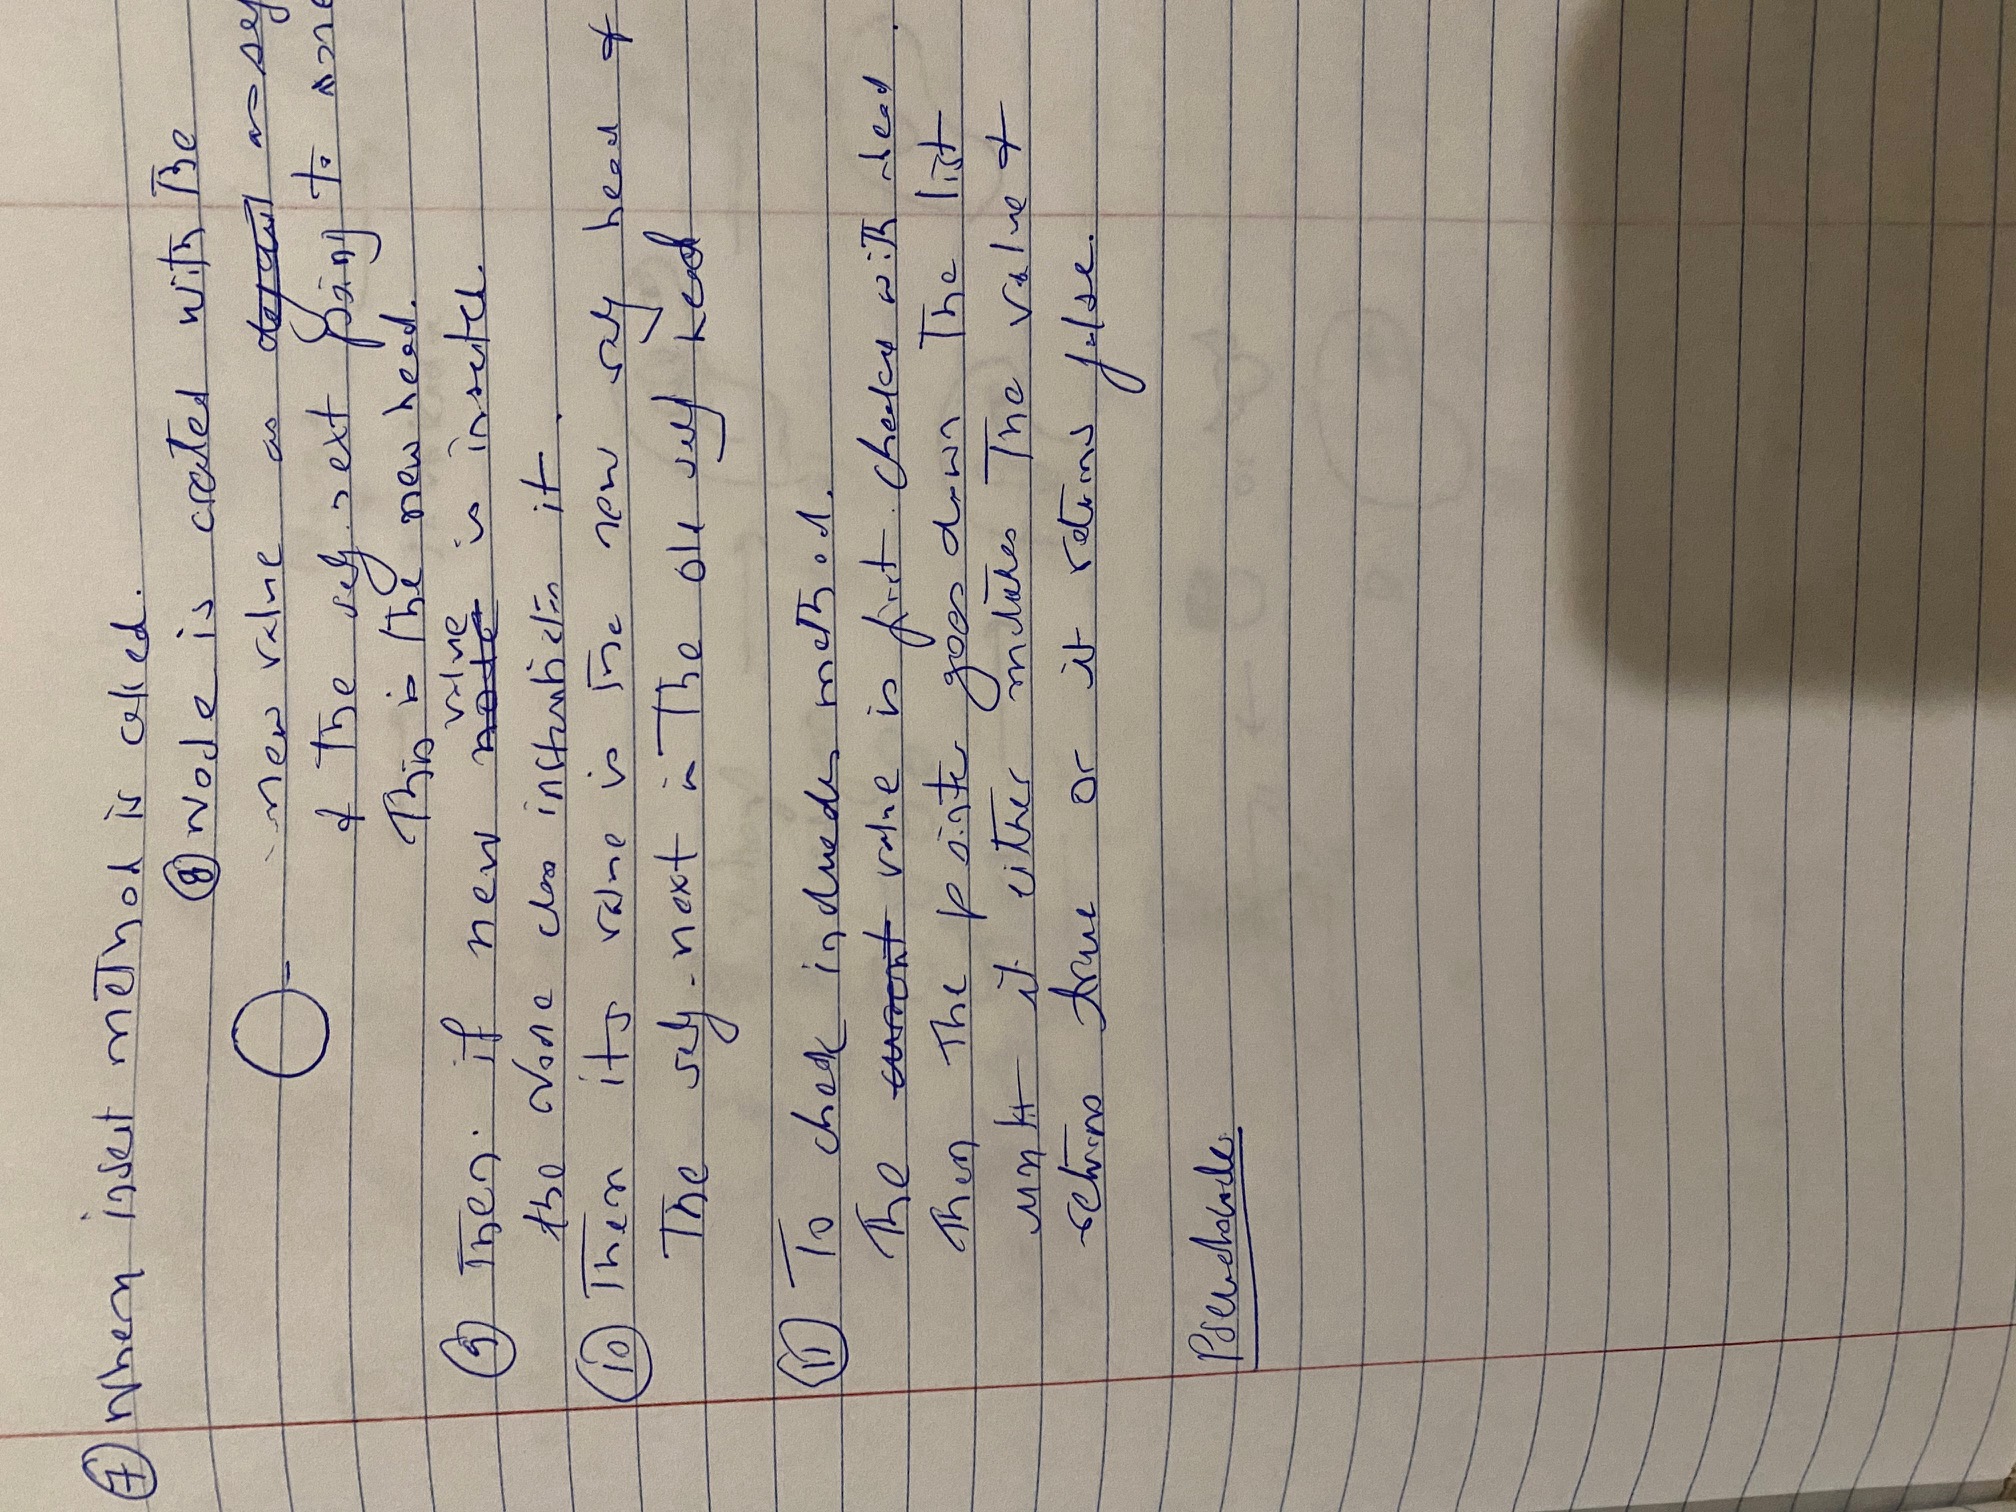 ⑦ When insert method is called.
⑧ Node is crated with The
new value as as self
& The self.next poing to none
This is the new head.
value
⑨ Then. if new node is inserted.
the Node class it.
⑩ Then its value is The new self head &
The self.next is The old self head
⑪ To check includes method.
The current value is first checked with head.
Then The pointer goes down The list
until it either matches The value &
returns true or it returns false.
Pseudocode: